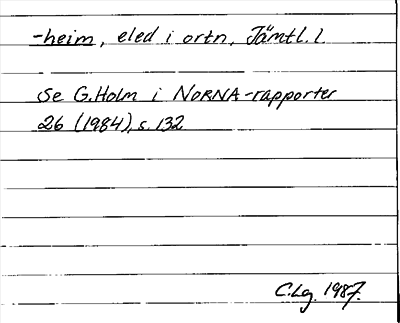 -heim, eled i ortn. Jämtl. l
Se G.Holm i NORNA-rapporter
26 (1984), s. 132
C.Lg. 1987.